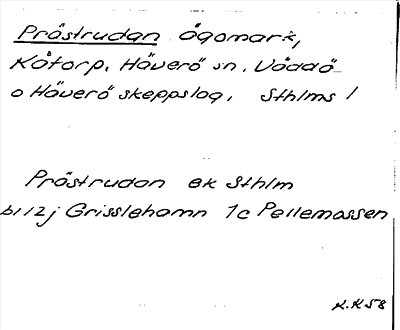 Pråstrudan Ågomark,
Kåtorp, Håverö sn, Våddö
o Håverö skeppslag, Sthlms l
Pråstrudan ek Sthlm
bl 12j Grisslehamn 1c Pellemossen
K.K 58